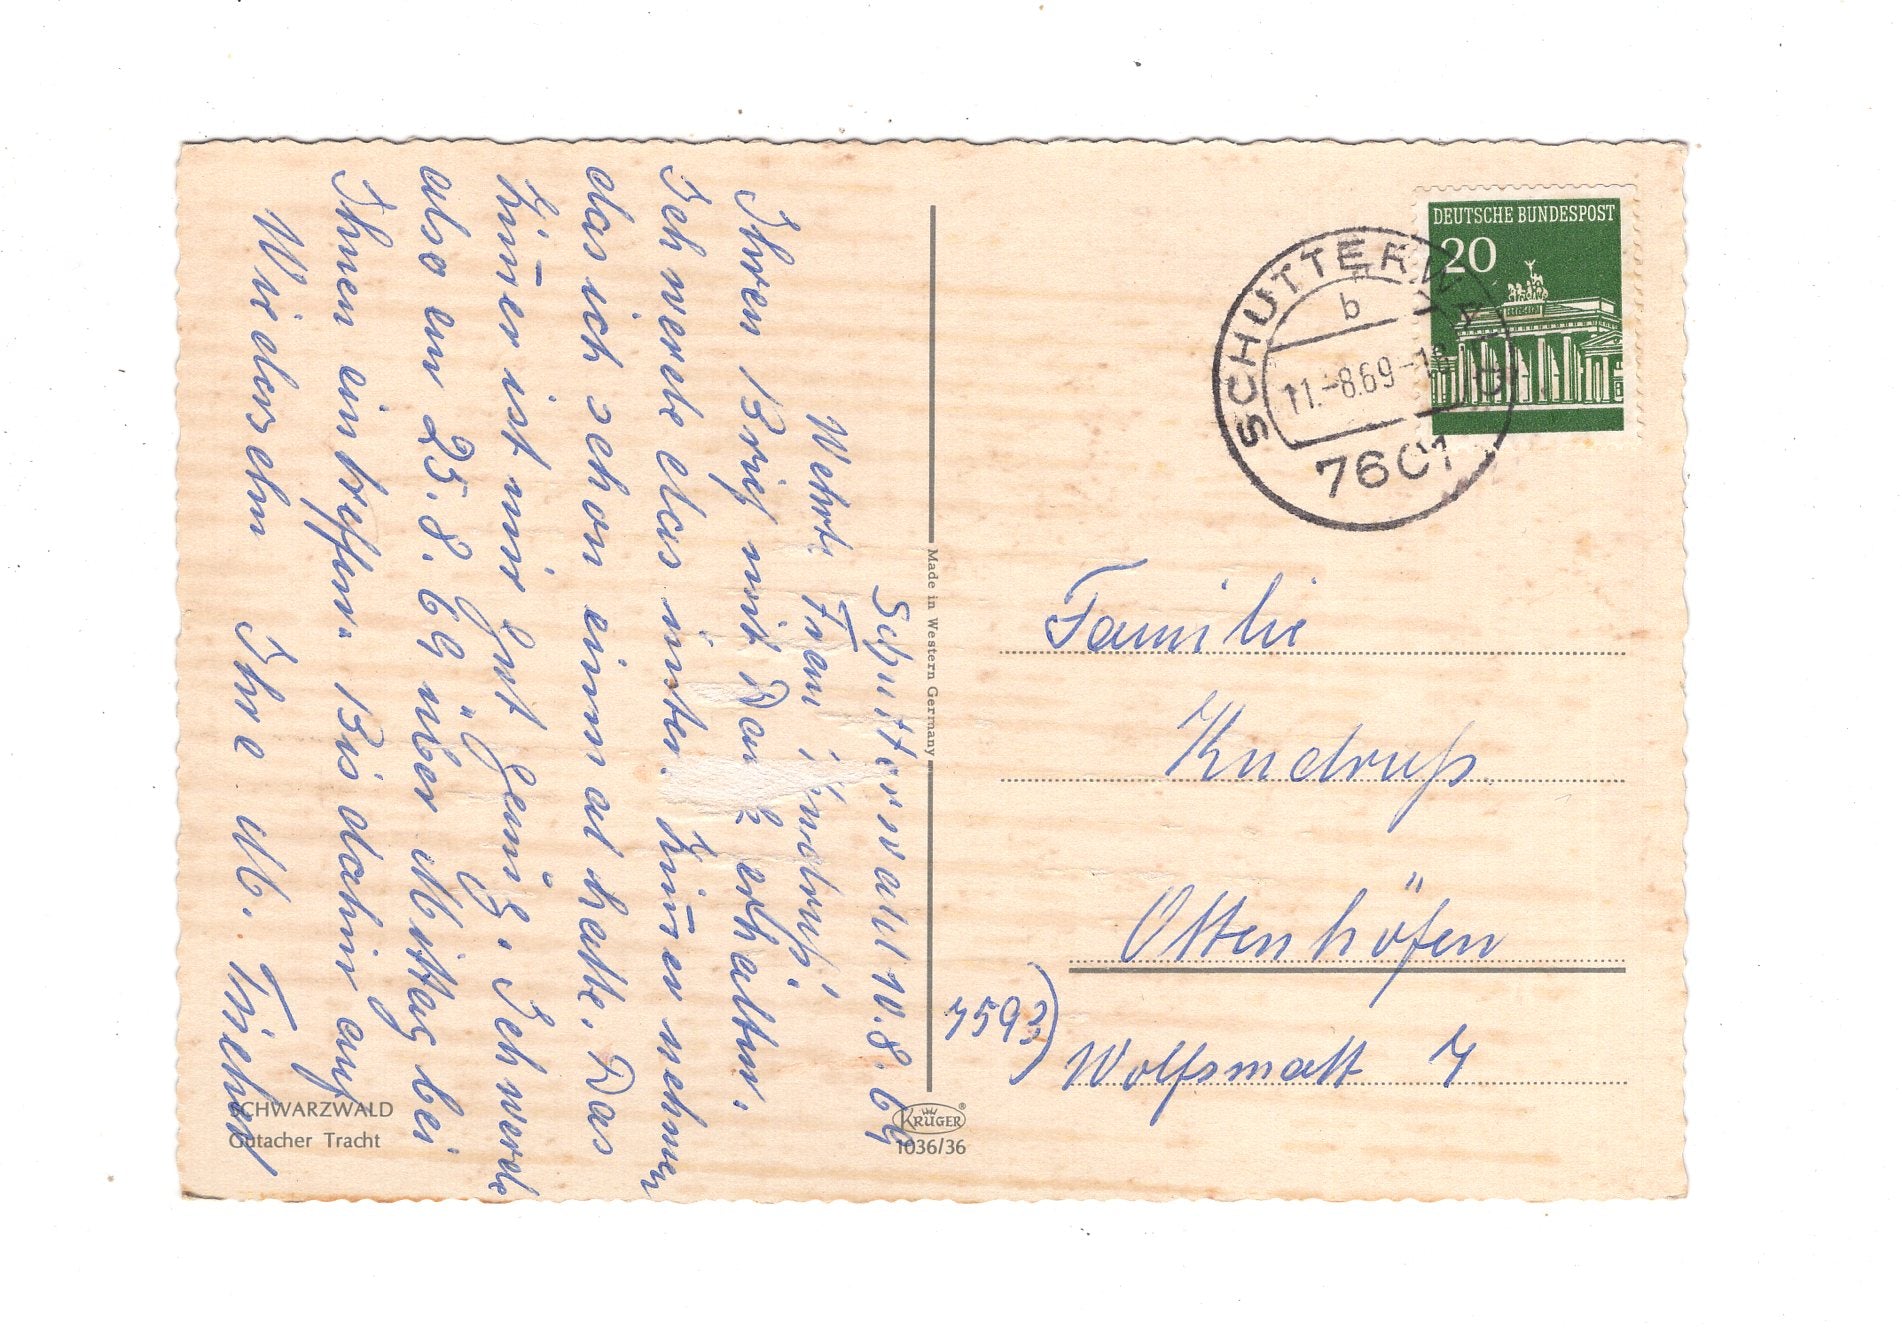 Schutterwald 10.8.69
Wehrte Frau Kudruß!
Ihren Brief mit Dank erhalten.
Ich werde das unter. Zimer nehmen
das ich schon einmal hatte. Das
Zimer ist mir gut genug. Ich werde
also am 25.8.69 über Mittag bei
Ihnen eintreffen. Bis dahin auf
Wiedersehn Ihre M.
SCHWARZWALD
Gutacher Tracht
Made in Western Germany
KRÜGER
1036/36
DEUTSCHE BUNDESPOST
20
SCHUTTERWALD
b
11.-8.69-18
7601
Familie
Kudruß
Ottenhöfen
7593)
Wolfsmatt 7